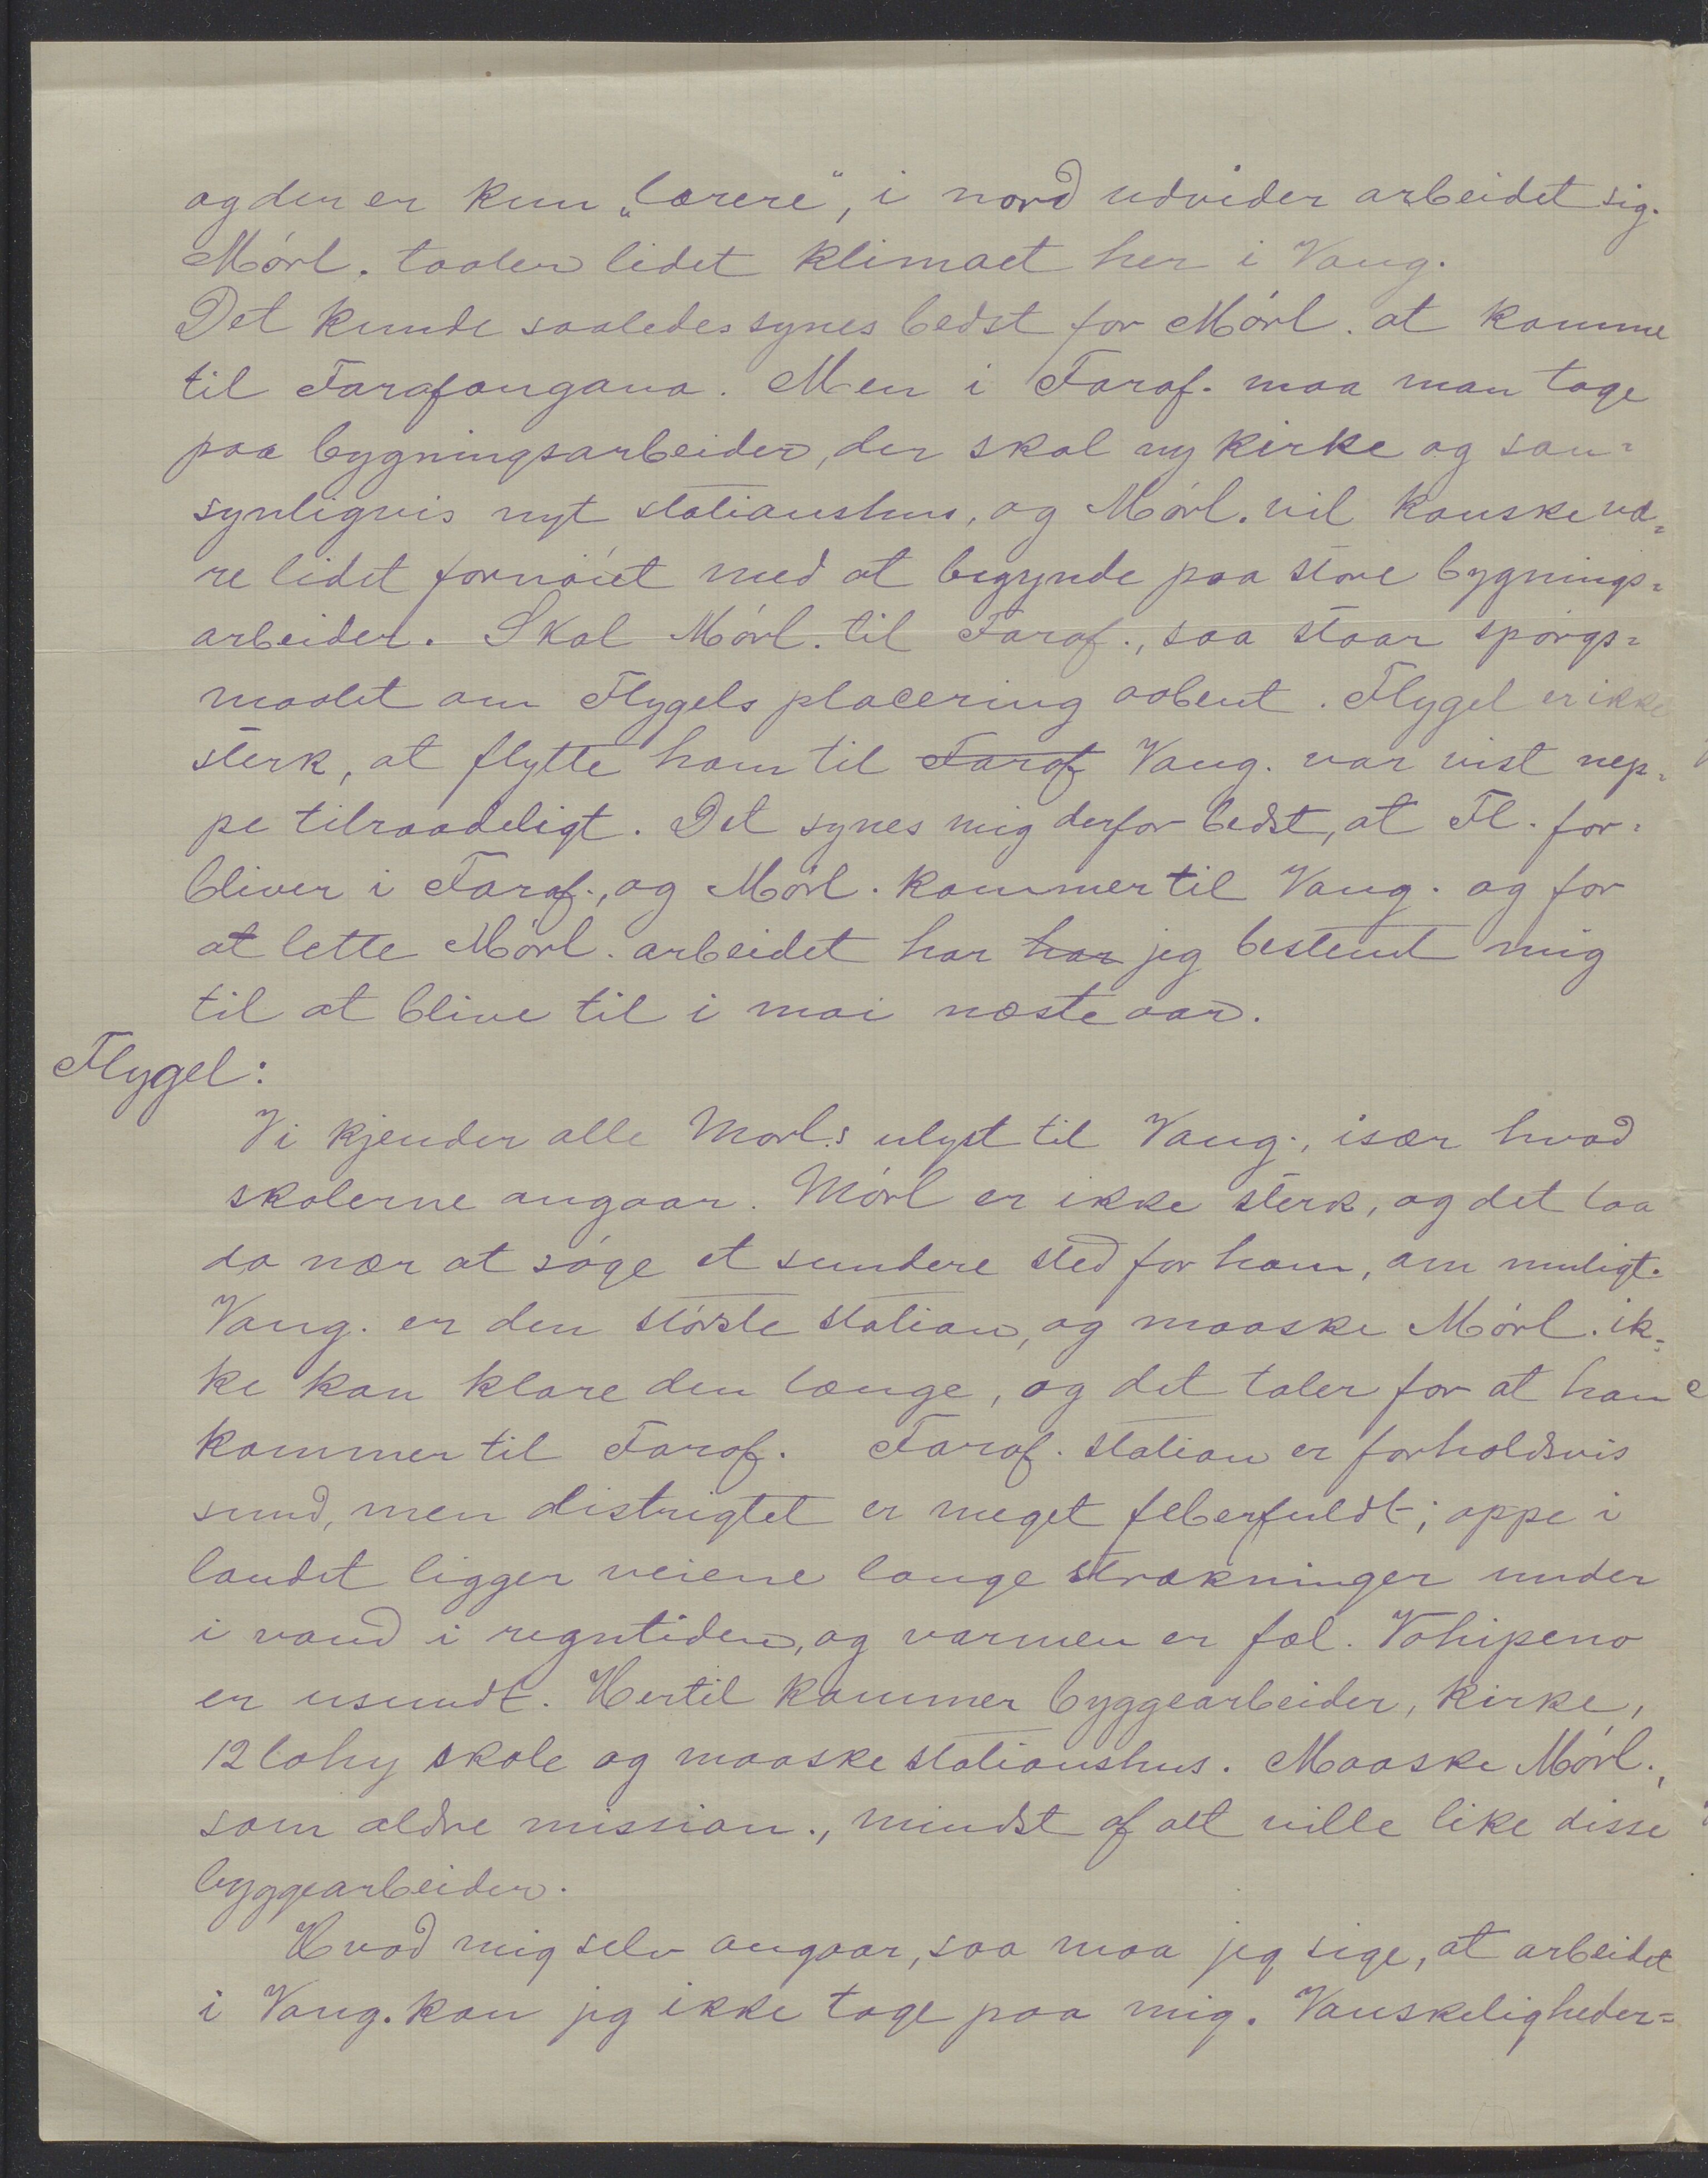 og der er kun „lærere", i nord udvider arbeidet sig.
Mörl. taaler lidet klimaet her i Vang.
Det kunde saaledes synes bedst for Mörl. at komme
til Farafangana. Men i Faraf. maa man tage
paa bygningsarbeider, der skal ny kirke og san=
synligvis nyt stationshus, og Mörl. vil kanske væ=
re lidet fornöiet med at begynde paa store bygnings=
arbeider. Skal Mörl. til Faraf., saa staar spörgs=
maalet om Flygels placering aabent. Flygel er ikke
sterk, at flytte ham til Faraf Vang. var vist nep=
pe tilraadeligt. Det synes mig derfor bedst, at Fl. for=
bliver i Faraf., og Mörl. kommer til Vang. og for
at lette Mörl. arbeidet har har jeg bestemt mig
til at blive til i mai næste aar.
Flygel:
Vi kjender alle Mörl.s ulyst til Vang., især hvad
skolerne angaar. Mörl er ikke sterk, og det laa
da nær at söge et sundere sted for ham, om muligt.
Vang. er den störste station, og maaske Mörl. ik=
ke kan klare den længe, og det taler for at han
kommer til Faraf. Faraf. station er forholdsvis
sund, men distrigtet er meget feberfuldt; oppe i
landet ligger veiene lange strækninger under
i vand i regntiden, og varmen er fæl. Vohipeno
er usundt. Hertil kommer byggearbeider, kirke,
12 lahy skole og maaske stationshus. Maaske Mörl.,
som ældre mission., mindst af alt vilde like disse
byggearbeider.
Hvad mig selv angaar, saa maa jeg sige, at arbeidet
i Vang. kan jeg ikke tage paa mig. Vanskeligheder=